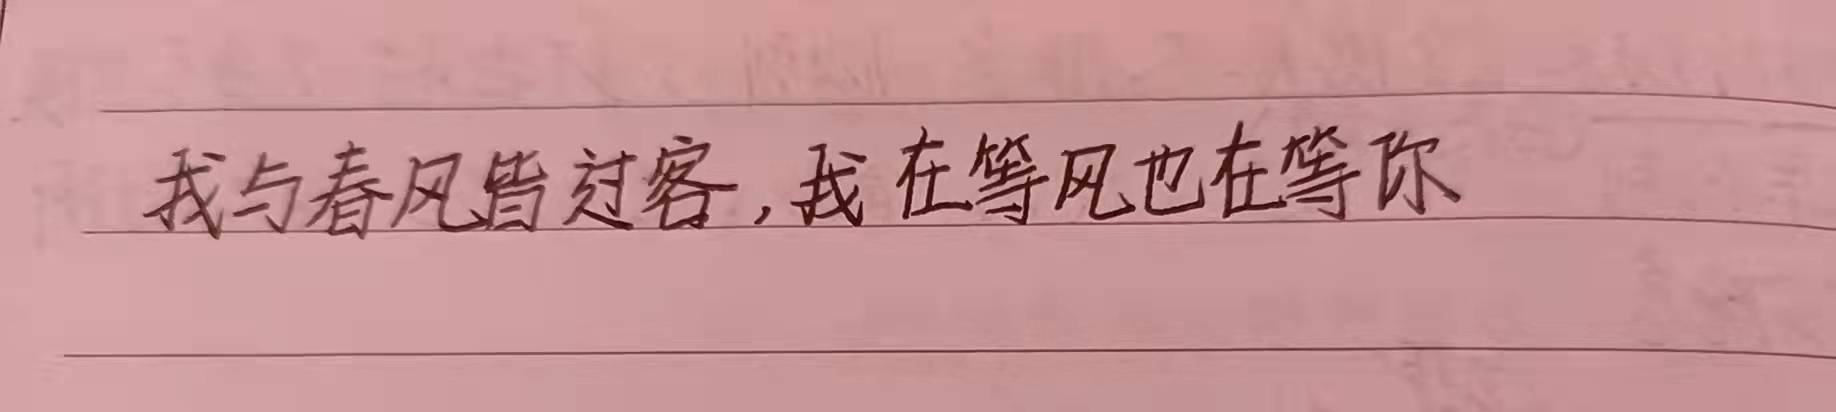 我与春风皆过客,我在等风也在等你